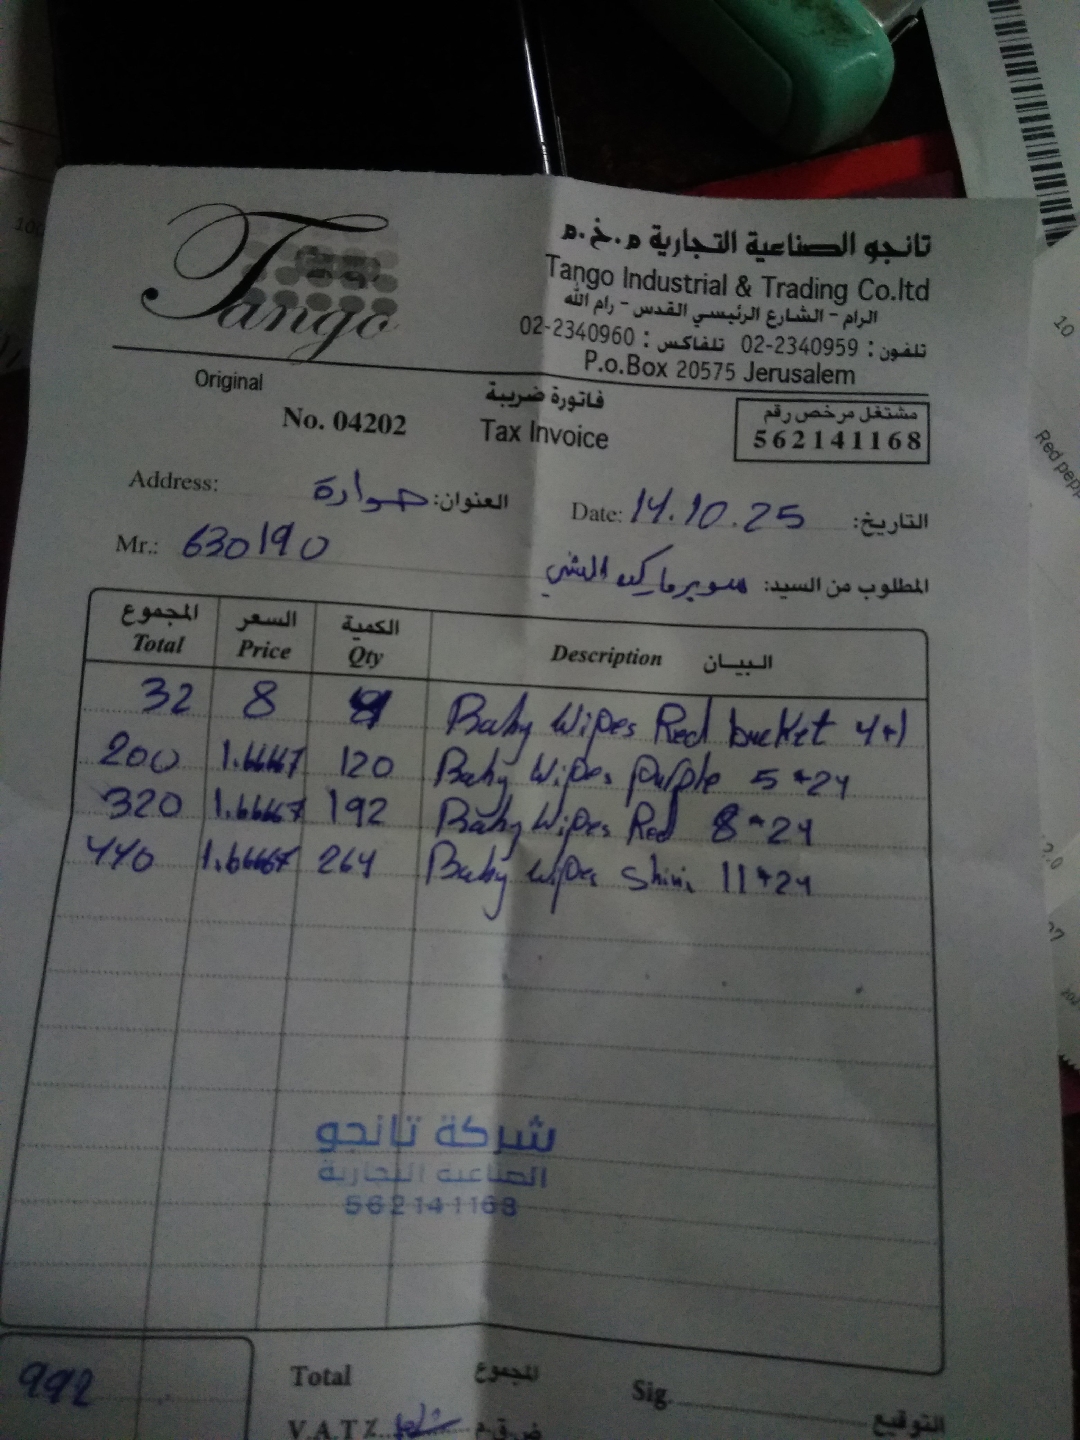 Tango
تانجو الصناعية التجارية م.خ.م
Tango Industrial & Trading Co.ltd
الرام - الشارع الرئيسي القدس - رام الله
تلفون : 02-2340959 تلفاكس : 02-2340960
P.o.Box 20575 Jerusalem
Original
No. 04202
فاتورة ضريبة
Tax Invoice
مشتغل مرخص رقم
562141168
Address: حوارة العنوان:
Date: 14.10.25 التاريخ:
Mr.: 630190
المطلوب من السيد: سوبرماركت
المجموع السعر الكمية البيان
Total Price Qty Description
32 8 4 Baby Wipes Red bucket 4+1
200 1.66667 120 Baby Wipes purple 5*24
320 1.66667 192 Baby Wipes Red 8*24
440 1.66667 264 Baby Wipes Shini 11*24
شركة تانجو
الصناعية التجارية
562141168
992 Total المجموع
Sig. التوقيع
V.A.T % ض.ق.م
10
Red pepp